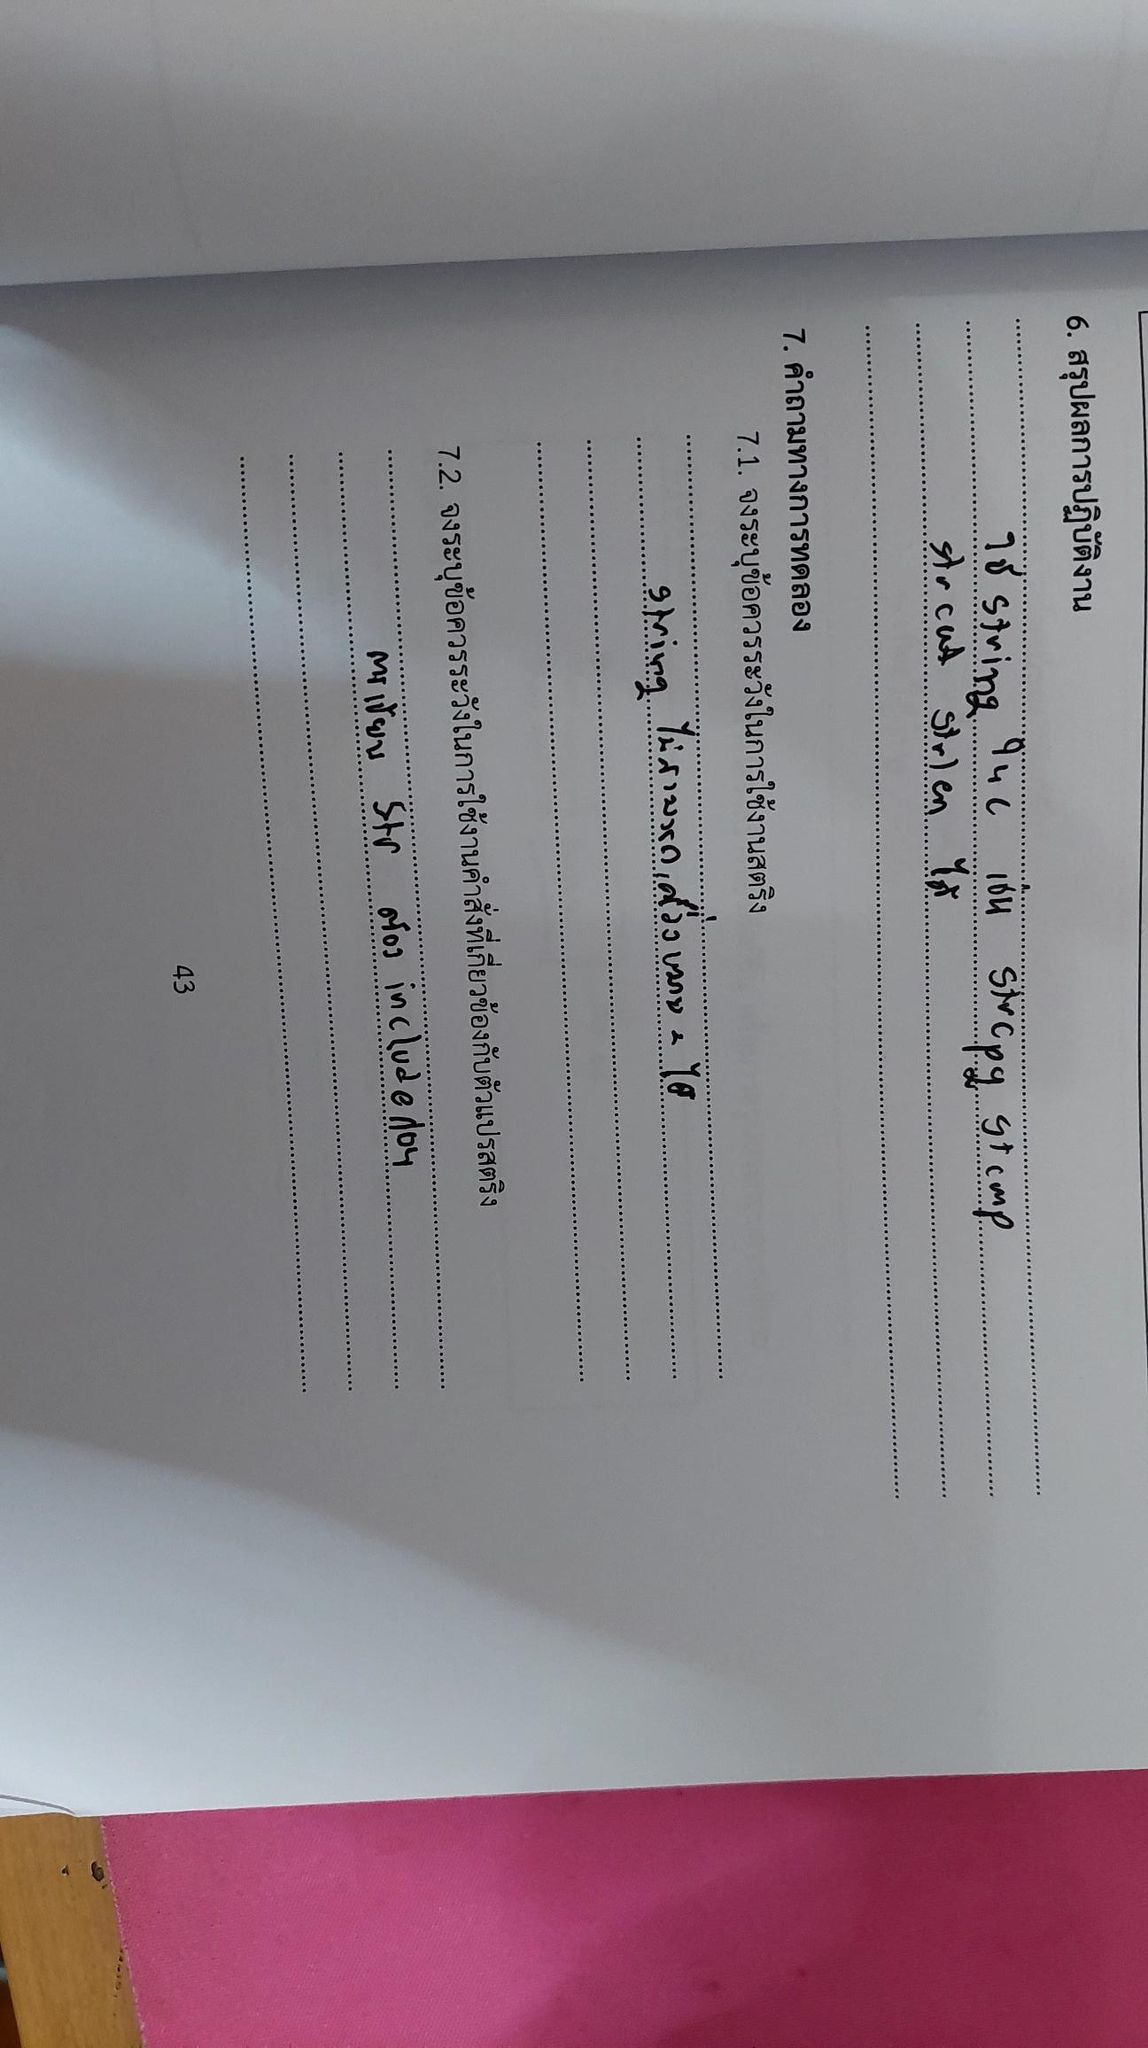 6. สรุปผลการปฏิบัติงาน
ใช้ string ใน c เช่น strcpy stcmp
strcat strlen ได้
7. คำถามทางการทดลอง
7.1. จงระบุข้อควรระวังในการใช้งานสตริง
string ไม่สามารถใช้เครื่องหมาย = ได้
7.2. จงระบุข้อควรระวังในการใช้งานคำสั่งที่เกี่ยวข้องกับตัวแปรสตริง
str ต้อง include ก่อน
43